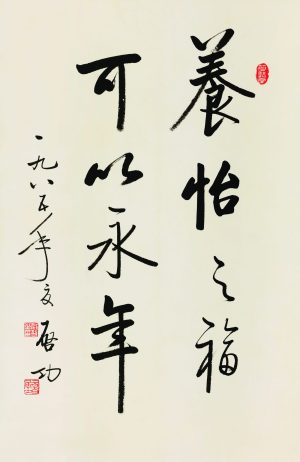 養怡之福
可以永年
一九八五年夏 启功